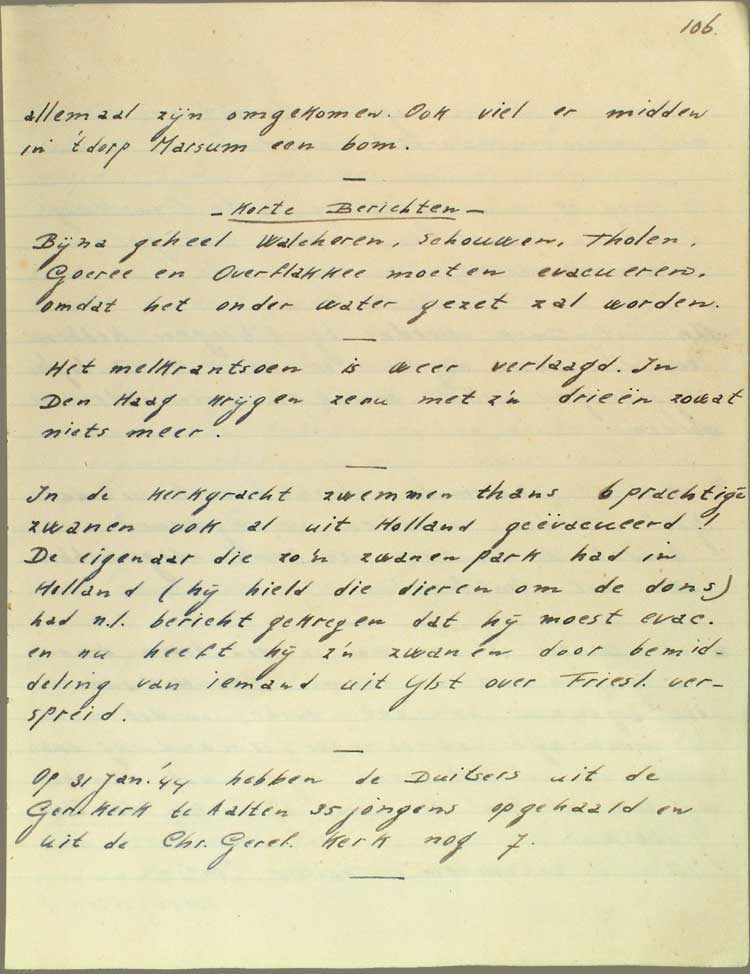 106.
allemaal zijn omgekomen. Ook viel er midden
in 't dorp Marsum een bom.
- Korte Berichten -
Bijna geheel Walcheren, Schouwen, Tholen,
Goeree en Overflakkee moeten evacueren,
omdat het onder water gezet zal worden.
Het melkrantsoen is weer verlaagd. In
Den Haag krijgen ze nu met z'n drieën zowat
niets meer.
In de Kerkgracht zwemmen thans 6 prachtige
zwanen ook al uit Holland geëvacueerd!
De eigenaar die zo'n zwanenpark had in
Holland (hij hield die dieren om de dons)
had n.l. bericht gekregen dat hij moest evac.
en nu heeft hij z'n zwanen door bemid-
deling van iemand uit Ylst over Friesl. ver-
spreid.
Op 31 Jan. '44 hebben de Duitsers uit de
Ger. Kerk te Aalten 35 jongens opgehaald en
uit de Chr. Geref. Kerk nog 7.